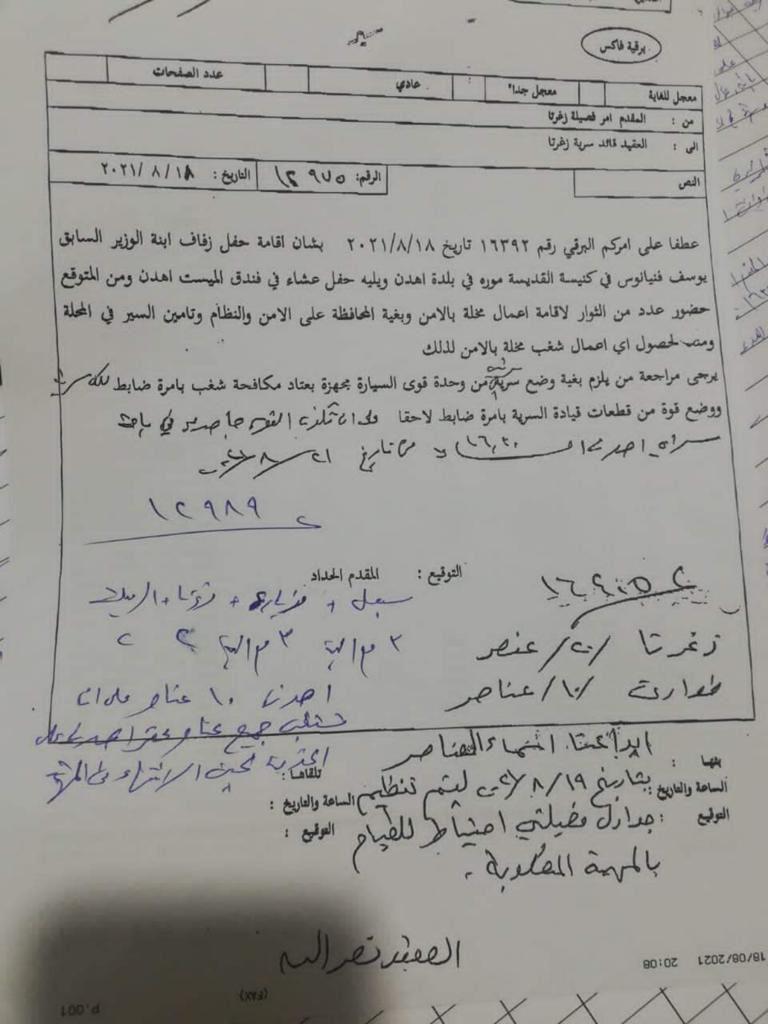 برقية فاكس
معجل للغاية معجل جدا" عادي عدد الصفحات
من : المقدم امر فصيلة زغرتا
الى : العقيد قائد سرية زغرتا
النص الرقم: ١٢٩٧٥ التاريخ: ٢٠٢١/٨/١٨
عطفا على امركم البرقي رقم ١٦٣٩٢ تاريخ ٢٠٢١/٨/١٨ بشان اقامة حفل زفاف ابنة الوزير السابق
يوسف فنيانوس في كنيسة القديسة موره في بلدة اهدن ويليه حفل عشاء في فندق الميست اهدن ومن المتوقع
حضور عدد من الثوار لاقامة اعمال مخلة بالامن وبغية المحافظة على الامن والنظام وتامين السير في المحلة
ومنعا لحصول اي اعمال شغب مخلة بالامن لذلك
يرجى مراجعة من يلزم بغية وضع سرية من وحدة قوى السيارة مجهزة بعتاد مكافحة شغب بامرة ضابط
ووضع قوة من قطعات قيادة السرية بامرة ضابط لاحقا على ان تكون القوى جاهزة في باحة
سراي اهدن الساعة ١٦,٣٠ من تاريخ ٢٠٢١/٨/٢١
١٢٩٨٩
التوقيع : المقدم الحداد
زغرتا /٢٠/ عنصر
طوارئ /١٠/ عناصر
اهدن ١٠ عناصر على ان
ايداعنا اسماء العناصر
بثها : تلقاها :
بتاريخ ٢٠٢١/٨/١٩ ليتم تنظيم
الساعة والتاريخ : الساعة والتاريخ :
جداول فصيلتي احتياط للقيام
التوقيع : التوقيع :
بالمهمة المطلوبة .
العقيد نصرالله
18/08/2021 20:08
(FAX)
P.001